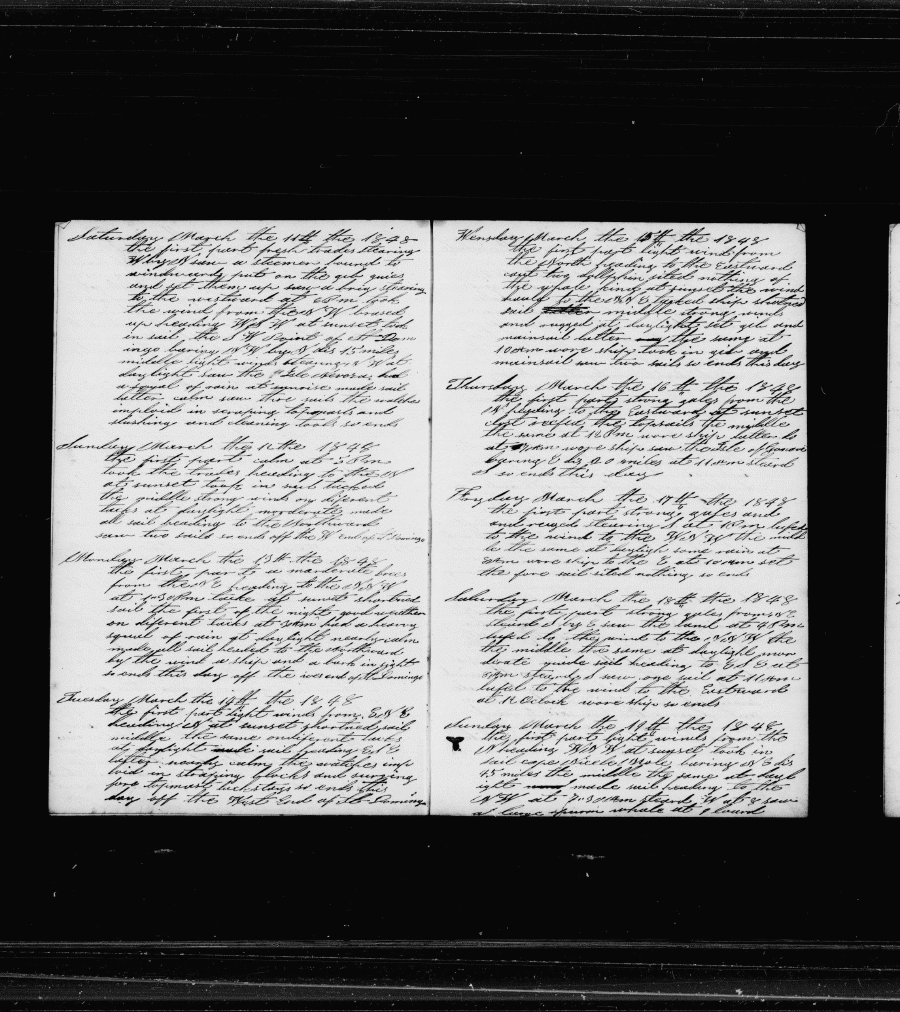 Saturday March the 11th the 1848
the first part fresh trades stearing
W by N saw a steemer bound to
windward put on the geb guies
and set them up saw a brig stearing
to the westward at 6 Pm took
the wind from the N W brased
up heading W S W at sunset took
in sail, the S W Point of St Dom
ingo baring N W by N dis 15 miles
middle light winds stearing N W at
daylight saw the Isle had
a squal of rain at sunrise made sail
latter calm saw three sails the watches
imploid in scraping and
slushing and cleaning tools so ends
Sunday March the 12 the 1848
the first part calm at Pm
took the trades heading to the N W
at sunset took in sail tacked
the middle strong wind on diferent
tacks at daylight morderate made
all sail heading to the Northward
saw two sails so ends off the W end of St Domingo
Monday March the 13th the 1848
the first part a marderate brees
from the N E heading to the N N W
at Pm tacke at sunset shortned
sail the first of the night good weather
on diferent tacks at 3 am had a heavy
squeel of rain at daylight nearly calm
made all sail headed to the Northward
by the wind a ship and a bark in sight
so ends this day off the west end of St Domingo
Tuesday March the 14th the 1848
the first part light winds from E N E
heading N at sunset shortned sail
middle the same on diferent tacks
at daylight sail heading
latter nearly calm the watches imp
loid in straping blocks and
fore topmast backstays so ends this
day off the West End of St Domingo
Wensday March the 15th the 1848
the first part light wind from
the North heading to the Eastward
cant two
the whale kind at sunset the wind
hauld to the N N E tacked ship shortned
sail middle strong wind
and ruged at daylight set geb and
mainsail latter the same at
10 am wore ship took in geb and
mainsail saw two sails so ends this day
Thursday March the 16th the 1848
the first part strong gales from the
N heading to the Eastward at sunset
reefed the topsails the middle
the same at 12 Pm wore ship latter
at am wore ship saw the Isle of
baring E by miles at 11 am steard
S so ends this day
Fryday March the 17th the 1848
the first part strong gales and
and ruged stearing S at Pm lufed
to the wind to the W N W the midd
le the same at dayligh some rain at
am wore ship to the E at 10 am set
the fore sail sited nothing so ends
Saturday March the 18th the 1848
the first part strong gales from N E
steard S by E saw the land at 4 Pm
lufed to the wind to the N N W the
the middle the same at daylight mor
derate made sail heading to E S E at
am steard S saw one sail at 11 am
lufed to the wind to the Eastward
at 12 Oclock wore ship so ends
Sunday March the 19th the 1848
the first part light winds from the
N heading W N W at sunset took in
sail cape Nicola Mole baring N E dis
45 miles the middle the same at dayl
ight made sail heading to the
N W at 7.30 am steard W at 8 saw
a large sperm whale at 9 lowrd